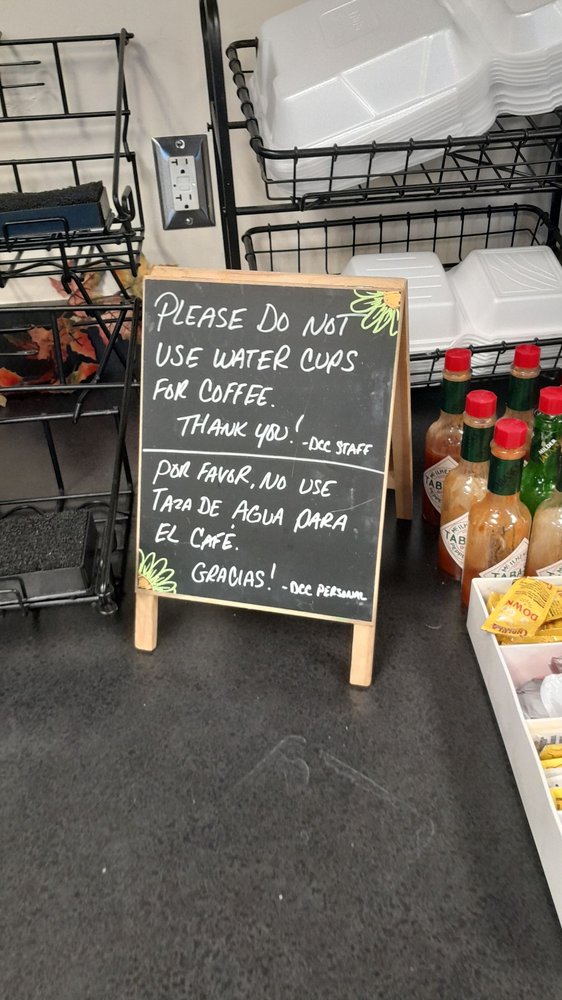 PLEASE DO NOT
USE WATER CUPS
FOR COFFEE.
THANK YOU! -DCC STAFF
POR FAVOR, NO USE
TAZA DE AGUA PARA
EL CAFÉ.
GRACIAS! -DCC PERSONAL
TABA
TABA
TABA
DOWN